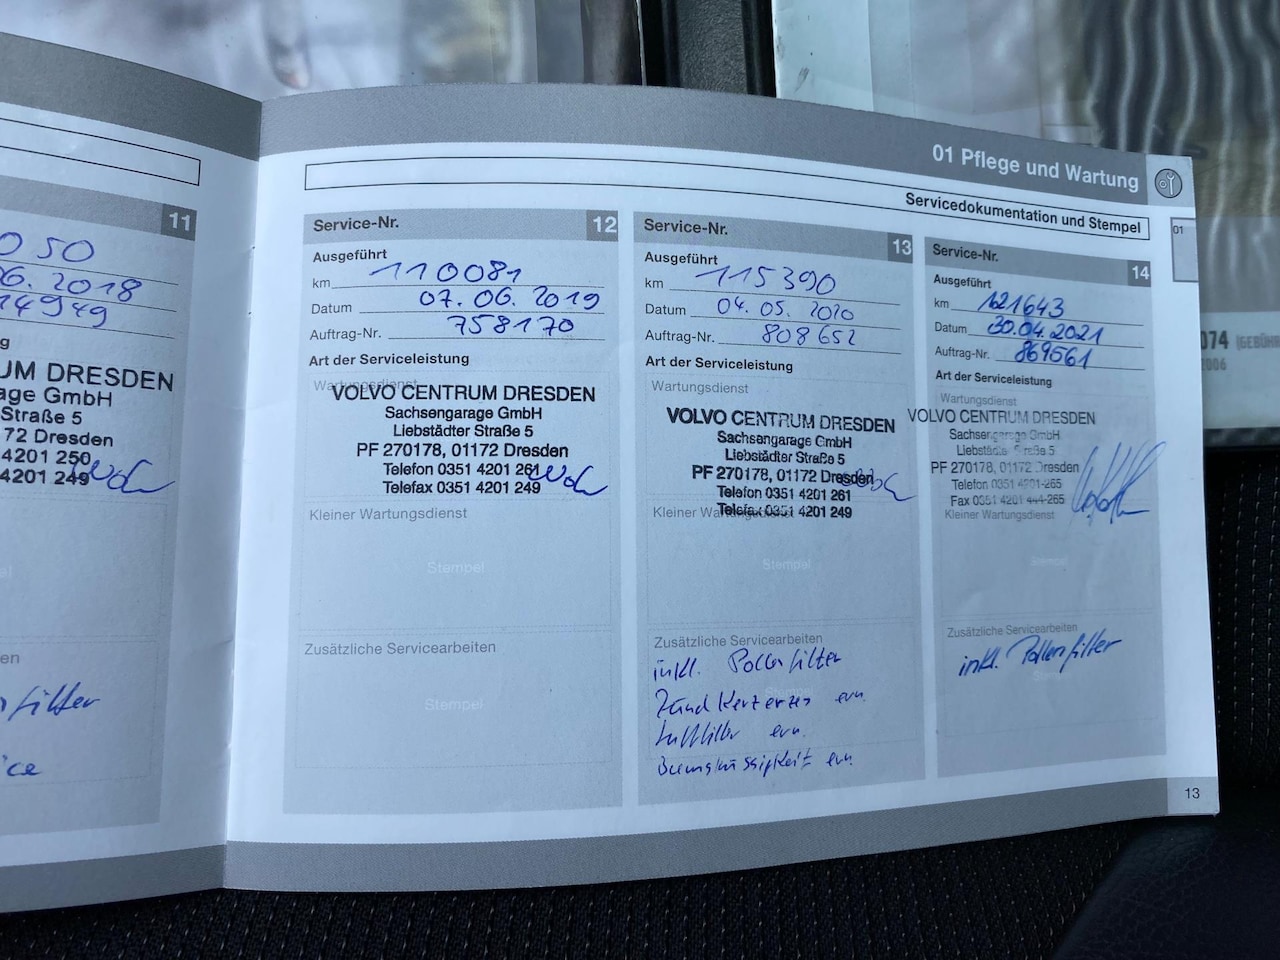 11
050
06.2018
14949
g
UM DRESDEN
age GmbH
Straße 5
72 Dresden
4201 250
4201 249
el
en
filter
ice
01 Pflege und Wartung
Servicedokumentation und Stempel
01
Service-Nr. 12
Ausgeführt
km 110081
Datum 07.06.2019
Auftrag-Nr. 758170
Art der Serviceleistung
Wartungsdienst
VOLVO CENTRUM DRESDEN
Sachsengarage GmbH
Liebstädter Straße 5
PF 270178, 01172 Dresden
Telefon 0351 4201 261
Telefax 0351 4201 249
Kleiner Wartungsdienst
Stempel
Zusätzliche Servicearbeiten
Stempel
Service-Nr. 13
Ausgeführt
km 115390
Datum 04.05.2020
Auftrag-Nr. 808652
Art der Serviceleistung
Wartungsdienst
VOLVO CENTRUM DRESDEN
Sachsengarage GmbH
Liebstädter Straße 5
PF 270178, 01172 Dresden
Telefon 0351 4201 261
Telefax 0351 4201 249
Kleiner Wartungsdienst
Stempel
Zusätzliche Servicearbeiten
inkl. Pollenfilter
Stempel
Zündkerzen ern.
Luftfilter ern.
Bremsflüssigkeit ern.
Service-Nr. 14
Ausgeführt
km 121643
Datum 30.04.2021
Auftrag-Nr. 869561
Art der Serviceleistung
Wartungsdienst
VOLVO CENTRUM DRESDEN
Sachsengarage GmbH
Liebstädter Straße 5
PF 270178, 01172 Dresden
Telefon 0351 4201-265
Fax 0351 4201 444-265
Kleiner Wartungsdienst
Stempel
Zusätzliche Servicearbeiten
inkl. Pollenfilter
13
074 (GEBÜHR
2006